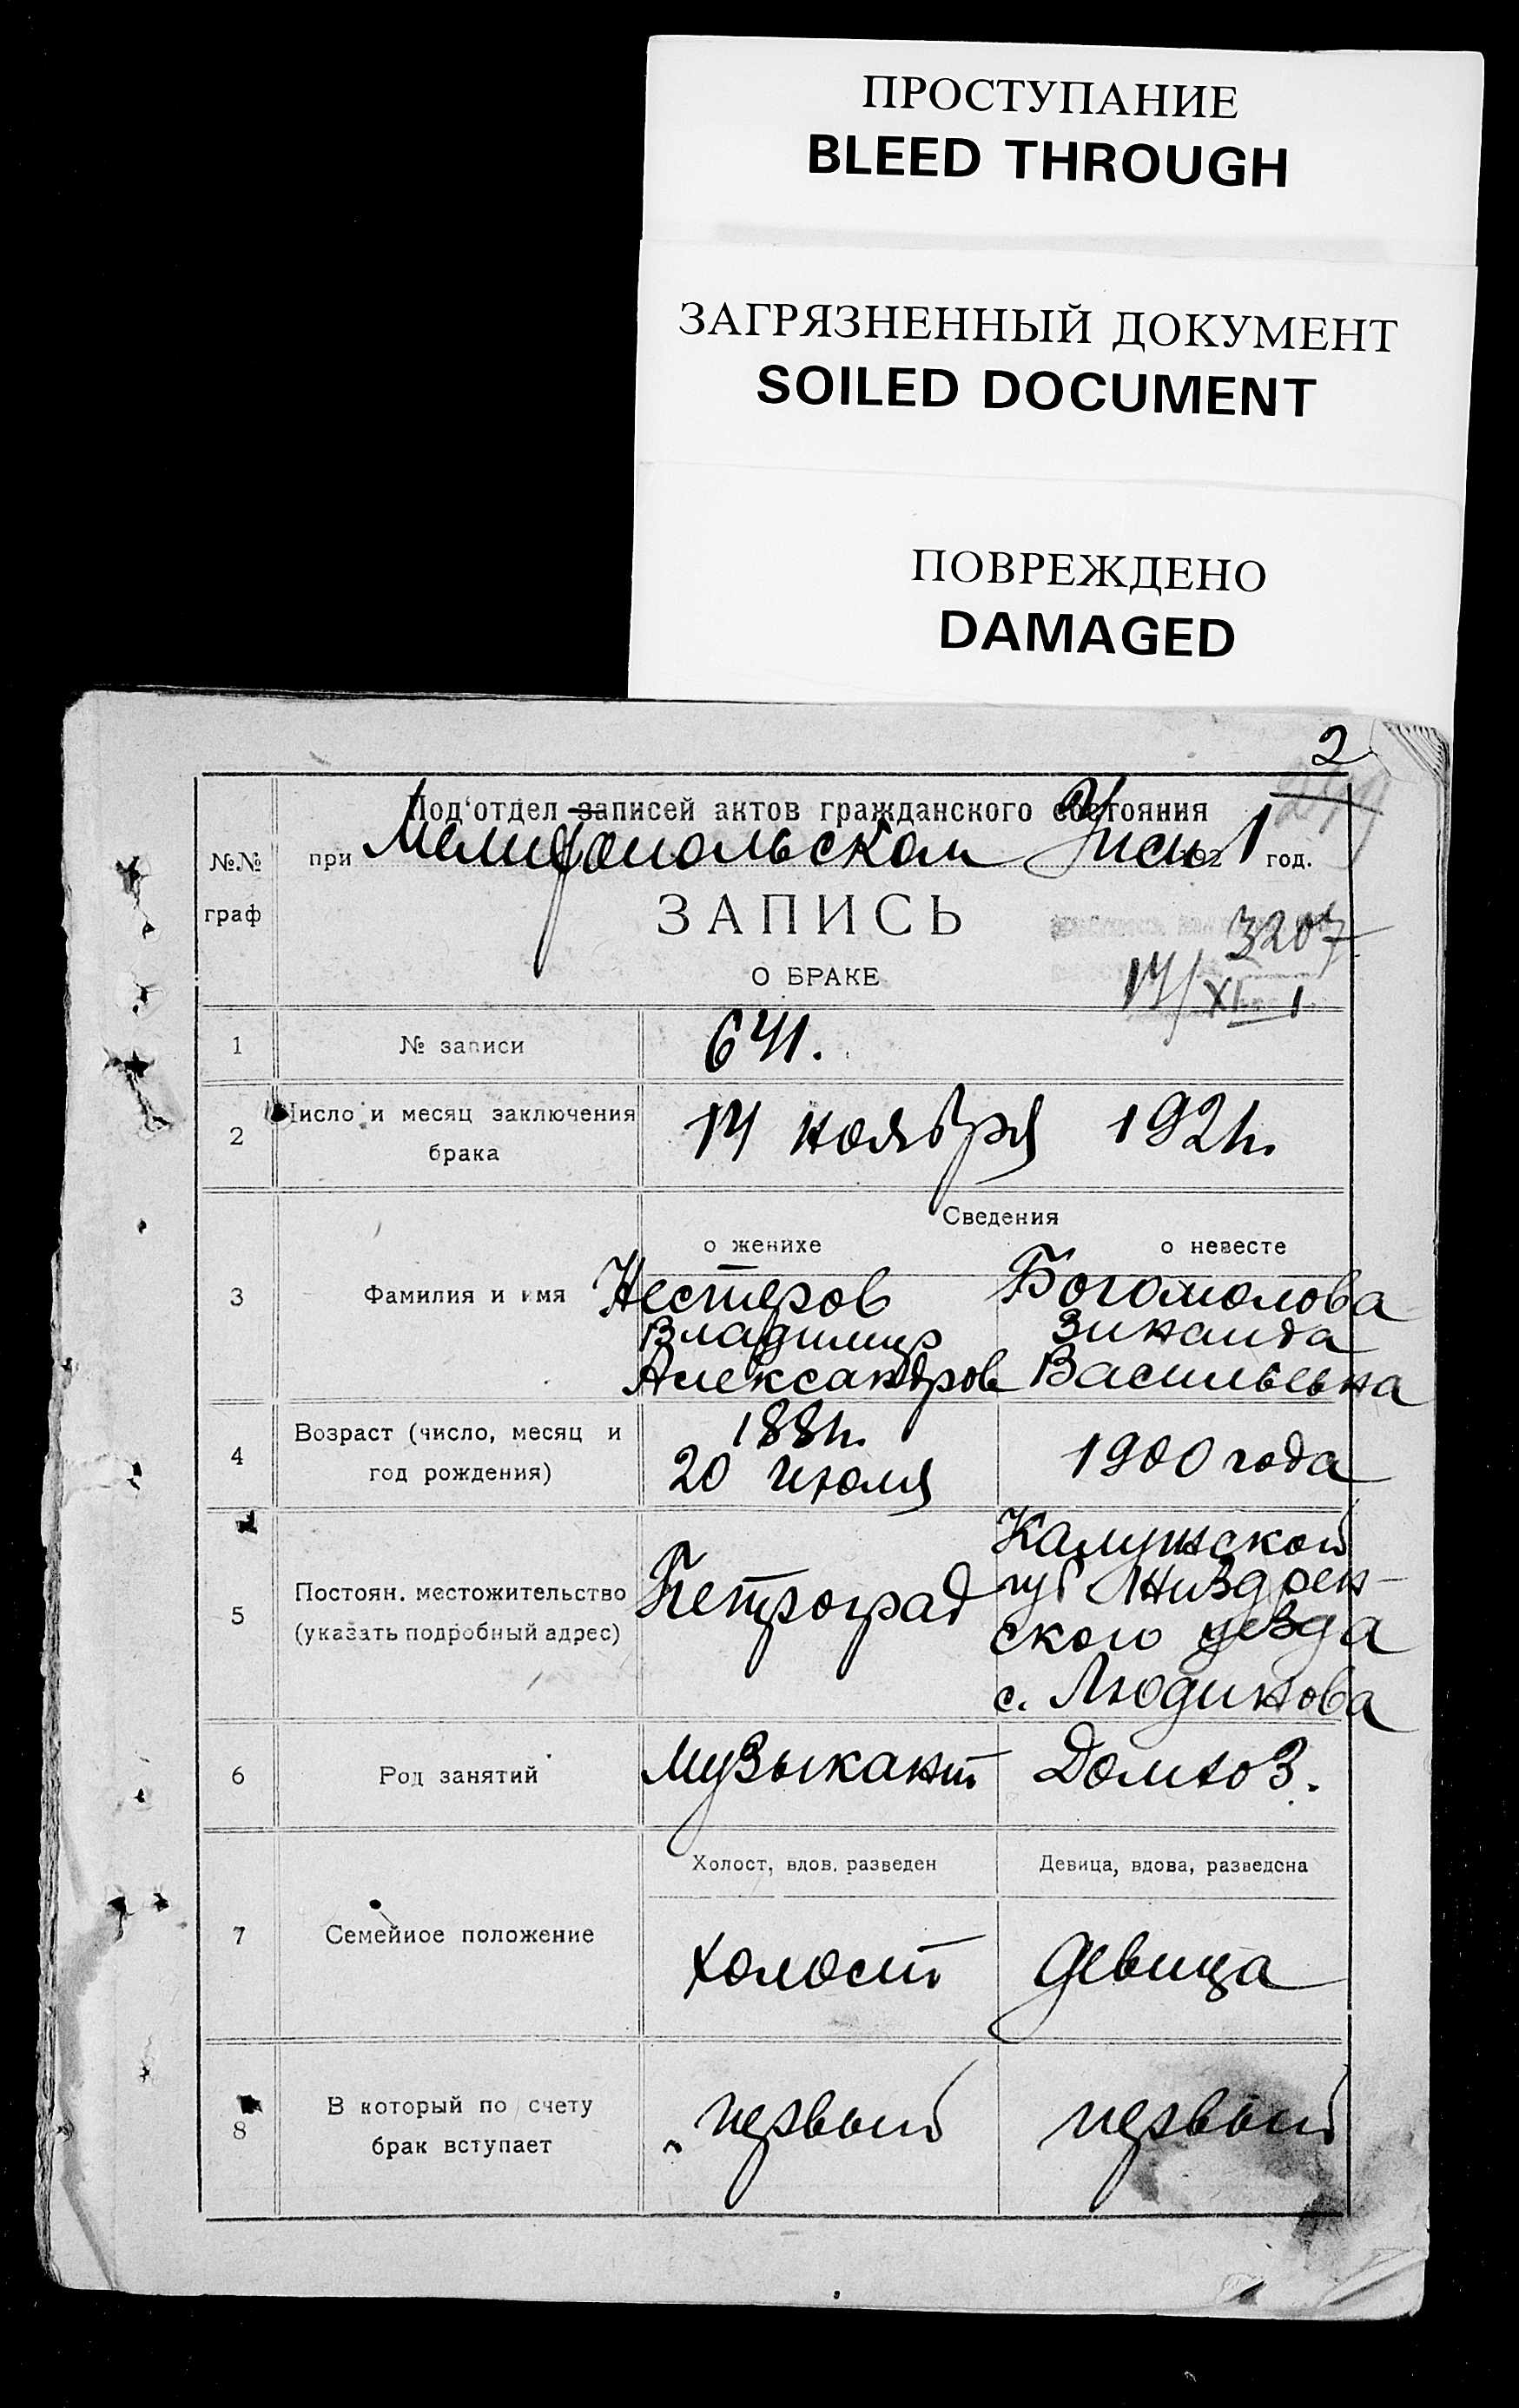 ПРОСТУПАНИЕ
BLEED THROUGH
ЗАГРЯЗНЕННЫЙ ДОКУМЕНТ
SOILED DOCUMENT
ПОВРЕЖДЕНО
DAMAGED
2
№№ граф
Под'отдел записей актов гражданского состояния
при Мелитопольском 1921 год.
ЗАПИСЬ
О БРАКЕ
3207
14/XI 1
1 № записи 641.
2 Число и месяц заключения брака 14 ноября 1921г.
Сведения
о женихе о невесте
3 Фамилия и имя
Нестеров Богомолова
Владимир Зинаида
Александров Васильевна
4 Возраст (число, месяц и год рождения)
1881г.
20 июля 1900 года
5 Постоян. местожительство (указать подробный адрес)
Петроград
Калужской
губ Жиздрен-
ского уезда
с. Людинова
6 Род занятий Музыкант Домхоз.
Холост, вдов. разведен Девица, вдова, разведена
7 Семейное положение холост девица
8 В который по счету брак вступает первый первый